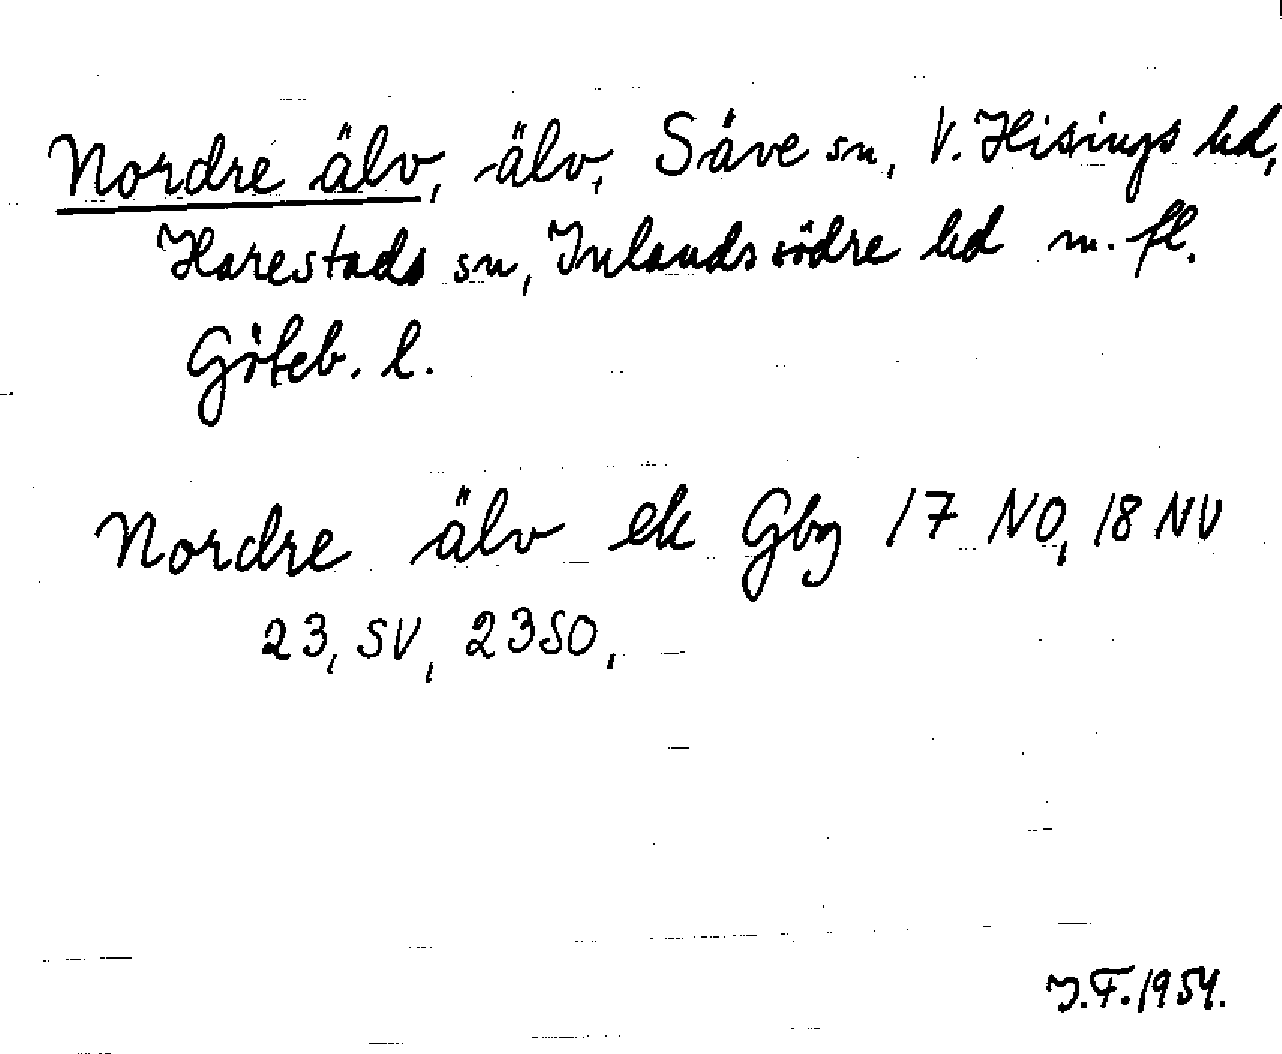 Nordre älv, älv, Säve sn, V. Hisings hd,
Harestads sn, Inlands södre hd m. fl.
Göteb. l.
Nordre älv ek Gbg 17 NO, 18 NV
23, SV, 23SO,
J.F. 1954.